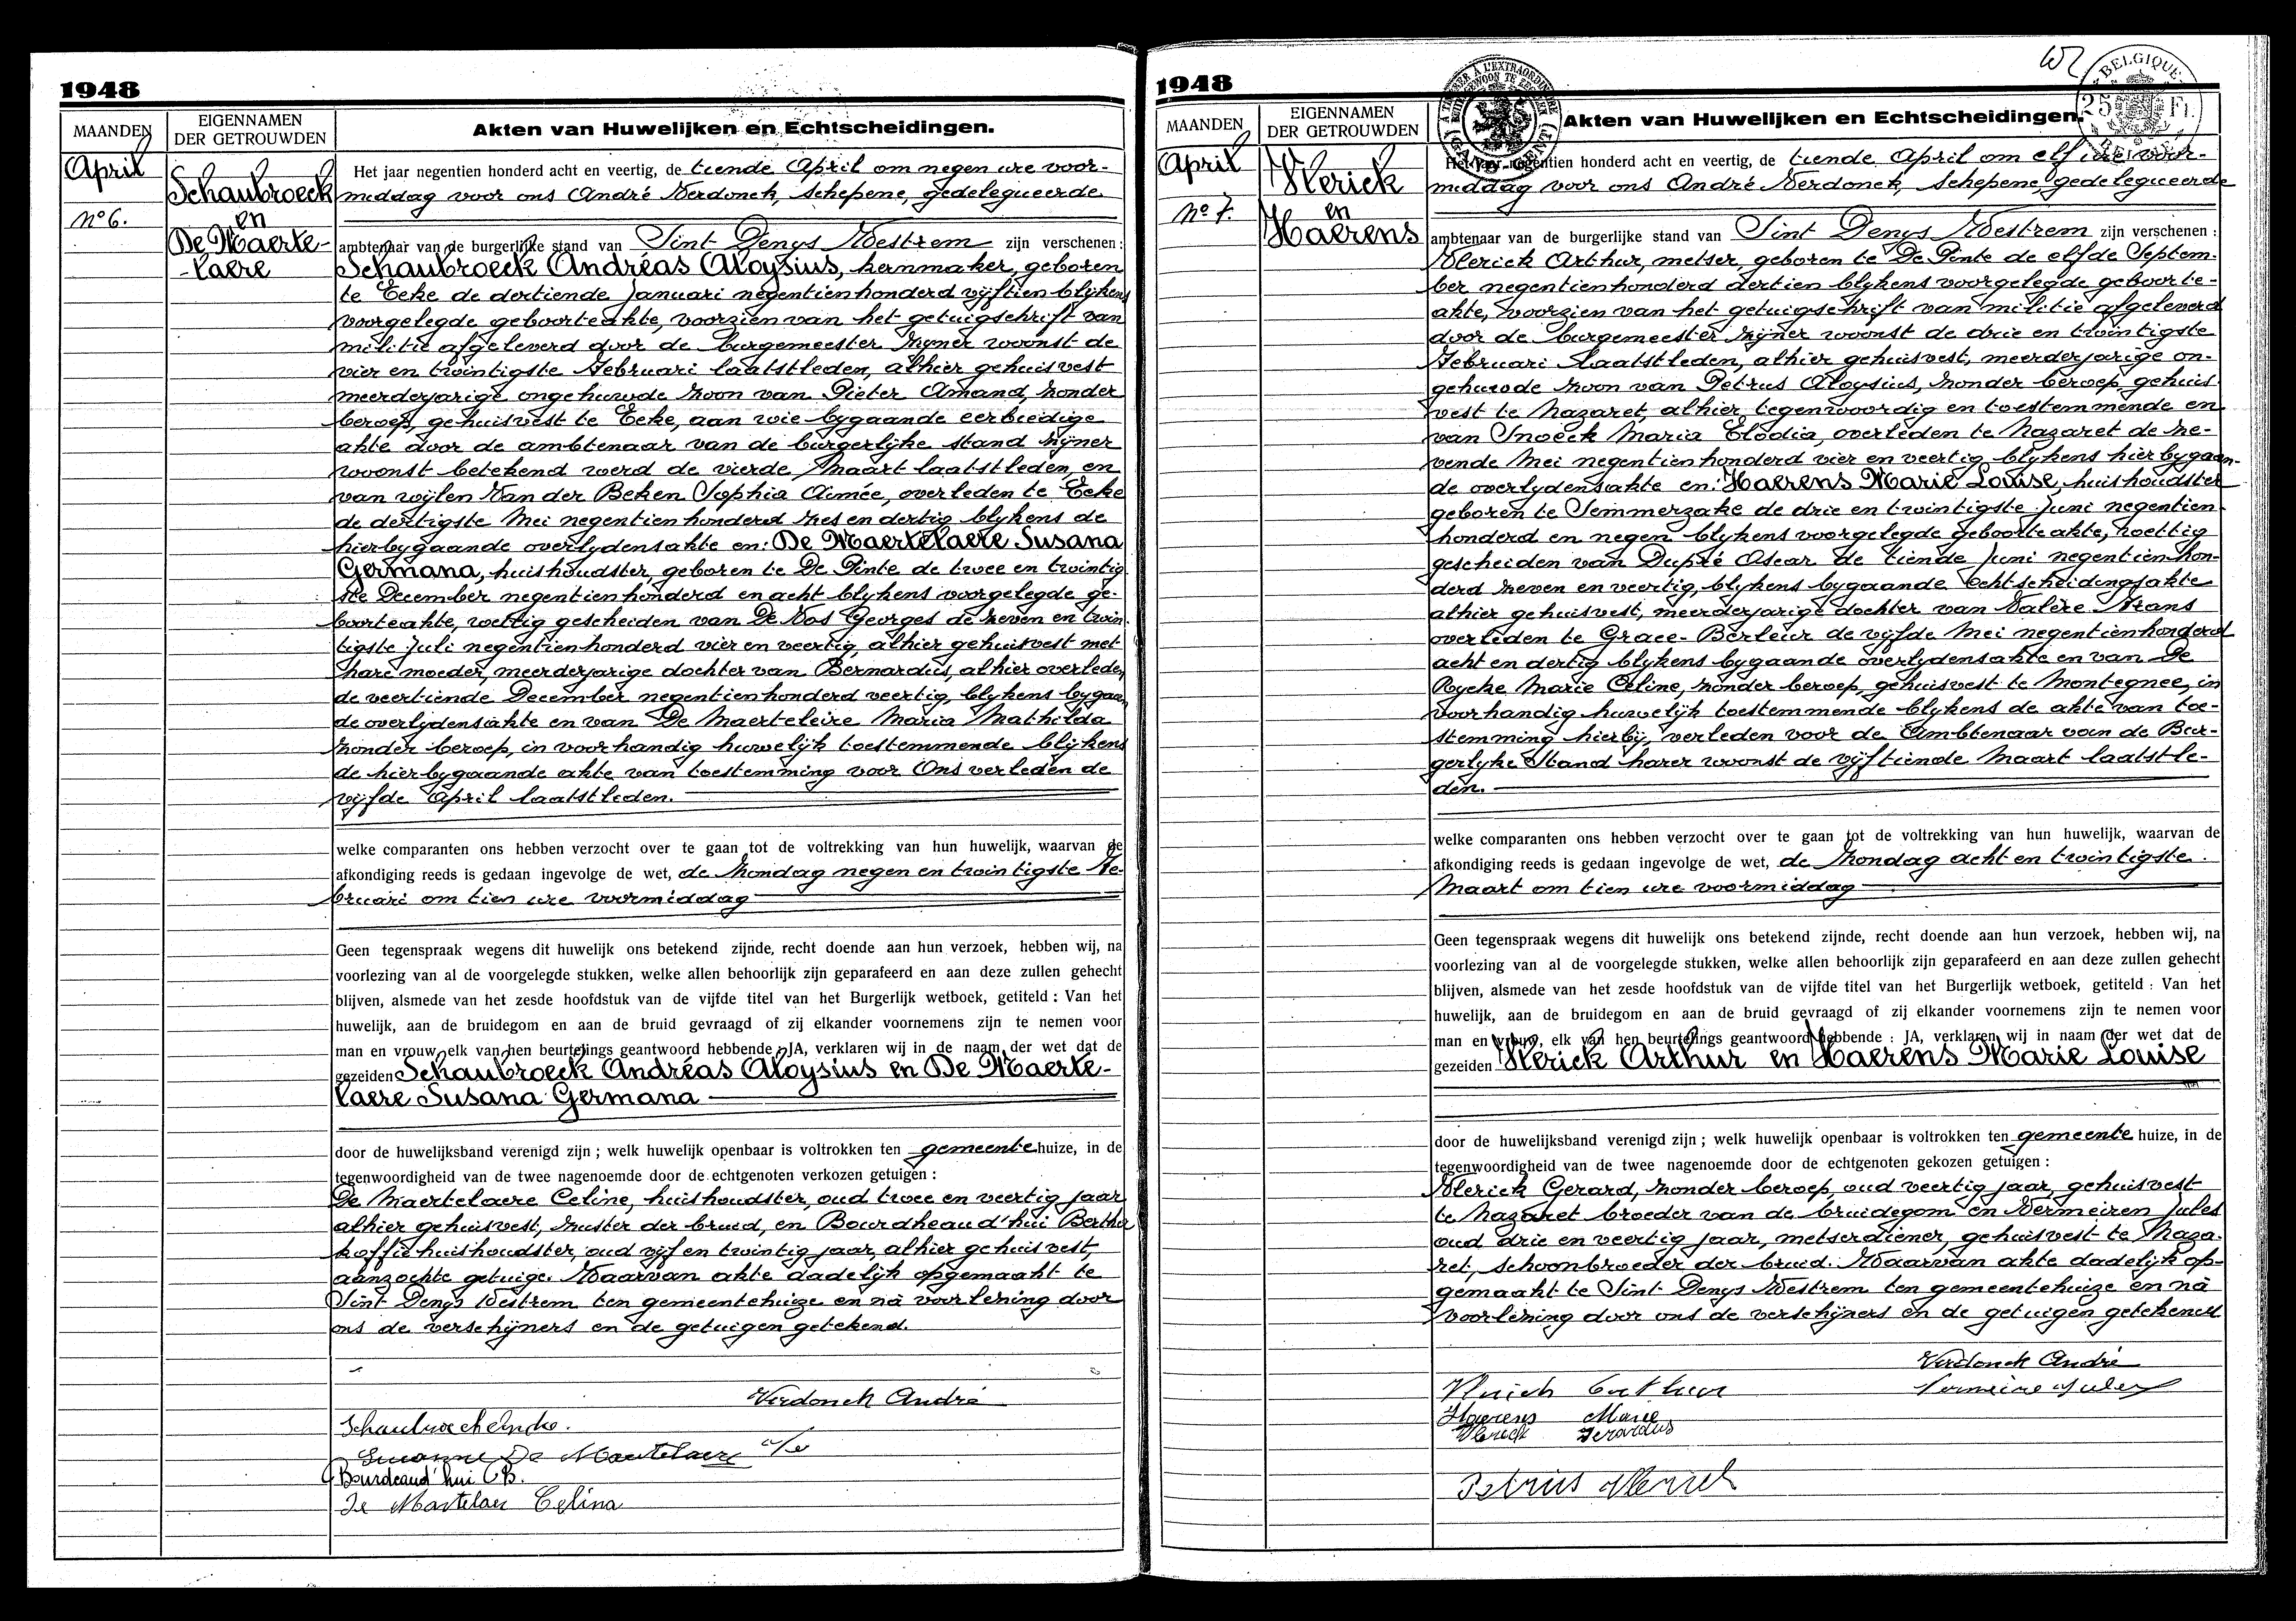 1948
MAANDEN
EIGENNAMEN
DER GETROUWDEN
Akten van Huwelijken en Echtscheidingen.
April
Schaubroeck
No 6.
en
De Maerte-
-laere
Het jaar negentien honderd acht en veertig, de tiende April om negen ure voor-
middag voor ons André Verdonck, Schepene, gedelegueerde
ambtenaar van de burgerlijke stand van Sint Denys Westrem zijn verschenen :
Schaubroeck Andréas Aloysius, kernmaker, geboren
te Eeke de dertiende Januari negentienhonderd vijftien blijkens
voorgelegde geboorteakte, voorzien van het getuigschrift van
militie afgeleverd door de burgemeester zijner woonst de
vier en twintigste Februari laatstleden, alhier gehuisvest
meerderjarige ongehuwde zoon van Pieter Amand, zonder
beroep, gehuisvest te Eeke, aan wie bygaande eerbiedige
akte door de ambtenaar van de burgerlyke stand zijner
woonst betekend werd de vierde Maart laatstleden, en
van wijlen Van der Beken Sophia Aimée, overleden te Eeke
de dertigste Mei negentienhonderd zes en dertig blykens de
hierbygaande overlydensakte en: De Maertelaere Susana
Germana, huishoudster, geboren te De Pinte de twee en twintig
ste December negentienhonderd en acht blykens voorgelegde ge-
boorteakte, wettig gescheiden van De Vos Georges de zeven en twin
tigste Juli negentienhonderd vier en veertig, alhier gehuisvest met
hare moeder, meerderjarige dochter van Bernardus, alhier overleden
de veertiende December negentienhonderd veertig, blykens bygaan
de overlydensakte en van De Maerteleire Maria Mathilda
zonder beroep, in voorhandig huwelijk toestemmende blijkens
de hierbygaande akte van toestemming voor Ons verleden de
vijfde April laatstleden.
welke comparanten ons hebben verzocht over te gaan tot de voltrekking van hun huwelijk, waarvan de
afkondiging reeds is gedaan ingevolge de wet, de Zondag negen en twintigste Fe-
bruari om tien ure voormiddag
Geen tegenspraak wegens dit huwelijk ons betekend zijnde, recht doende aan hun verzoek, hebben wij, na
voorlezing van al de voorgelegde stukken, welke allen behoorlijk zijn geparafeerd en aan deze zullen gehecht
blijven, alsmede van het zesde hoofdstuk van de vijfde titel van het Burgerlijk wetboek, getiteld : Van het
huwelijk, aan de bruidegom en aan de bruid gevraagd of zij elkander voornemens zijn te nemen voor
man en vrouw, elk van hen beurtelings geantwoord hebbende : JA, verklaren wij in de naam der wet dat de
gezeiden Schaubroeck Andréas Aloysius en De Maerte-
laere Susana Germana
door de huwelijksband verenigd zijn ; welk huwelijk openbaar is voltrokken ten gemeentehuize, in de
tegenwoordigheid van de twee nagenoemde door de echtgenoten verkozen getuigen :
De Maertelaere Celine, huishoudster, oud twee en veertig jaar
alhier gehuisvest, zuster der bruid, en Bourdheaud'hui Bertha
koffiehuishoudster, oud vijf en twintig jaar, alhier gehuisvest,
aanzochte getuige. Waarvan akte dadelijk opgemaakt te
Sint Denys Westrem ten gemeentehuize en nà voorlezing door
ons de verschijners en de getuigen getekend.
Verdonck André
Suzanne De Maertelaere
Bourdeaud'hui B.
De Martelaer Celina
1948
BELGIQUE
25 Fr.
BELGIE
MAANDEN
EIGENNAMEN
DER GETROUWDEN
Akten van Huwelijken en Echtscheidingen.
April
Vlerick
No 7.
en
Haerens
Het jaar negentien honderd acht en veertig, de tiende April om elf ure voor-
middag voor ons André Verdonck, Schepene, gedelegueerde
ambtenaar van de burgerlijke stand van Sint Denys Westrem zijn verschenen :
Vlerick Arthur, metser, geboren te De Pinte de elfde Septem-
ber negentienhonderd dertien blykens voorgelegde geboorte-
akte, voorzien van het getuigschrift van militie afgeleverd
door de burgemeester zijner woonst de drie en twintigste
Februari laatstleden, alhier gehuisvest, meerderjarige on-
gehuwde zoon van Petrus Aloysius, zonder beroep, gehuis
vest te Nazaret, alhier tegenwoordig en toestemmende en
van Snoeck Maria Elodia, overleden te Nazaret de ze-
vende Mei negentienhonderd vier en veertig blykens hierbygaan-
de overlydensakte en: Haerens Marie Louise, huishoudster
geboren te Semmerzake de drie en twintigste Juni negentien
honderd en negen blykens voorgelegde geboorteakte, wettig
gescheiden van Dupré Oscar de tiende Juni negentienhon-
derd zeven en veertig, blykens bygaande echtscheidingsakte
alhier gehuisvest, meerderjarige dochter van Valère Frans
overleden te Grace-Berleur de vijfde Mei negentienhonderd
acht en dertig blykens bygaande overlydensakte en van De
Rycke Marie Celine, zonder beroep, gehuisvest te Montegnee, in
voorhandig huwelijk toestemmende blykens de akte van toe-
stemming hierbij, verleden voor de Ambtenaar van de Bur-
gerlyke Stand harer woonst de vijftiende Maart laatstle-
den.
welke comparanten ons hebben verzocht over te gaan tot de voltrekking van hun huwelijk, waarvan de
afkondiging reeds is gedaan ingevolge de wet, de Zondag acht en twintigste
Maart om tien ure voormiddag
Geen tegenspraak wegens dit huwelijk ons betekend zijnde, recht doende aan hun verzoek, hebben wij, na
voorlezing van al de voorgelegde stukken, welke allen behoorlijk zijn geparafeerd en aan deze zullen gehecht
blijven, alsmede van het zesde hoofdstuk van de vijfde titel van het Burgerlijk wetboek, getiteld : Van het
huwelijk, aan de bruidegom en aan de bruid gevraagd of zij elkander voornemens zijn te nemen voor
man en vrouw, elk van hen beurtelings geantwoord hebbende : JA, verklaren wij in naam der wet dat de
gezeiden Vlerick Arthur en Haerens Marie Louise
door de huwelijksband verenigd zijn ; welk huwelijk openbaar is voltrokken ten gemeente huize, in de
tegenwoordigheid van de twee nagenoemde door de echtgenoten gekozen getuigen :
Vlerick Gerard, zonder beroep, oud veertig jaar, gehuisvest
te Nazaret broeder van de bruidegom en Vermeiren Jules
oud drie en veertig jaar, metserdiener, gehuisvest te Naza-
ret, schoonbroeder der bruid. Waarvan akte dadelijk op-
gemaakt te Sint Denys Westrem ten gemeentehuize en nà
voorlezing door ons de verschijners en de getuigen getekend
Verdonck André
Vlerick Arthur
Vermeire Jules
Haerens Marie
Vlerick Gerardus
Petrus Vlerick